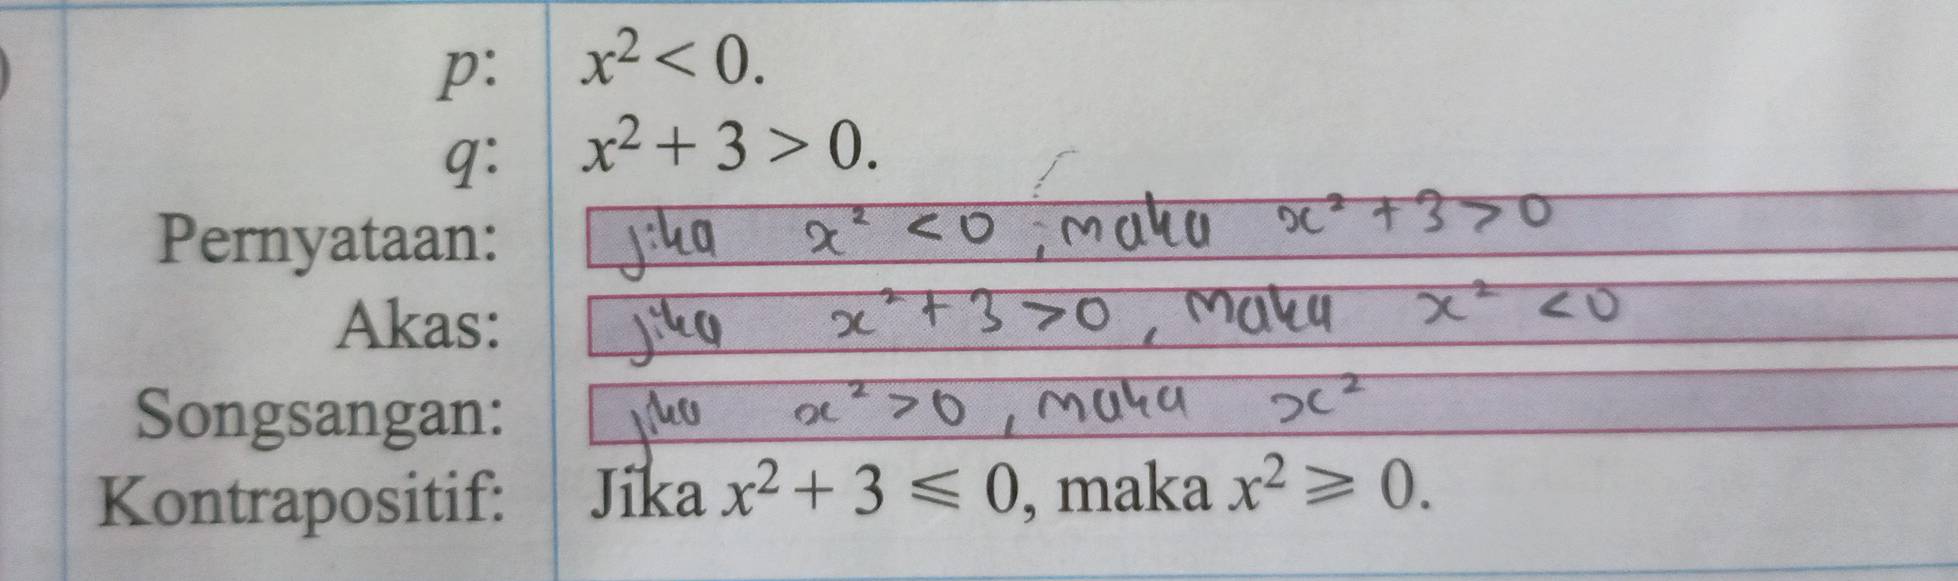 p: x² < 0.
q: x² + 3 > 0.
Pernyataan: jika x² < 0, maka x² + 3 > 0
Akas: jika x² + 3 > 0, maka x² < 0
Songsangan: jika x² > 0, maka x²
Kontrapositif: Jika x² + 3 ⩽ 0, maka x² ⩾ 0.